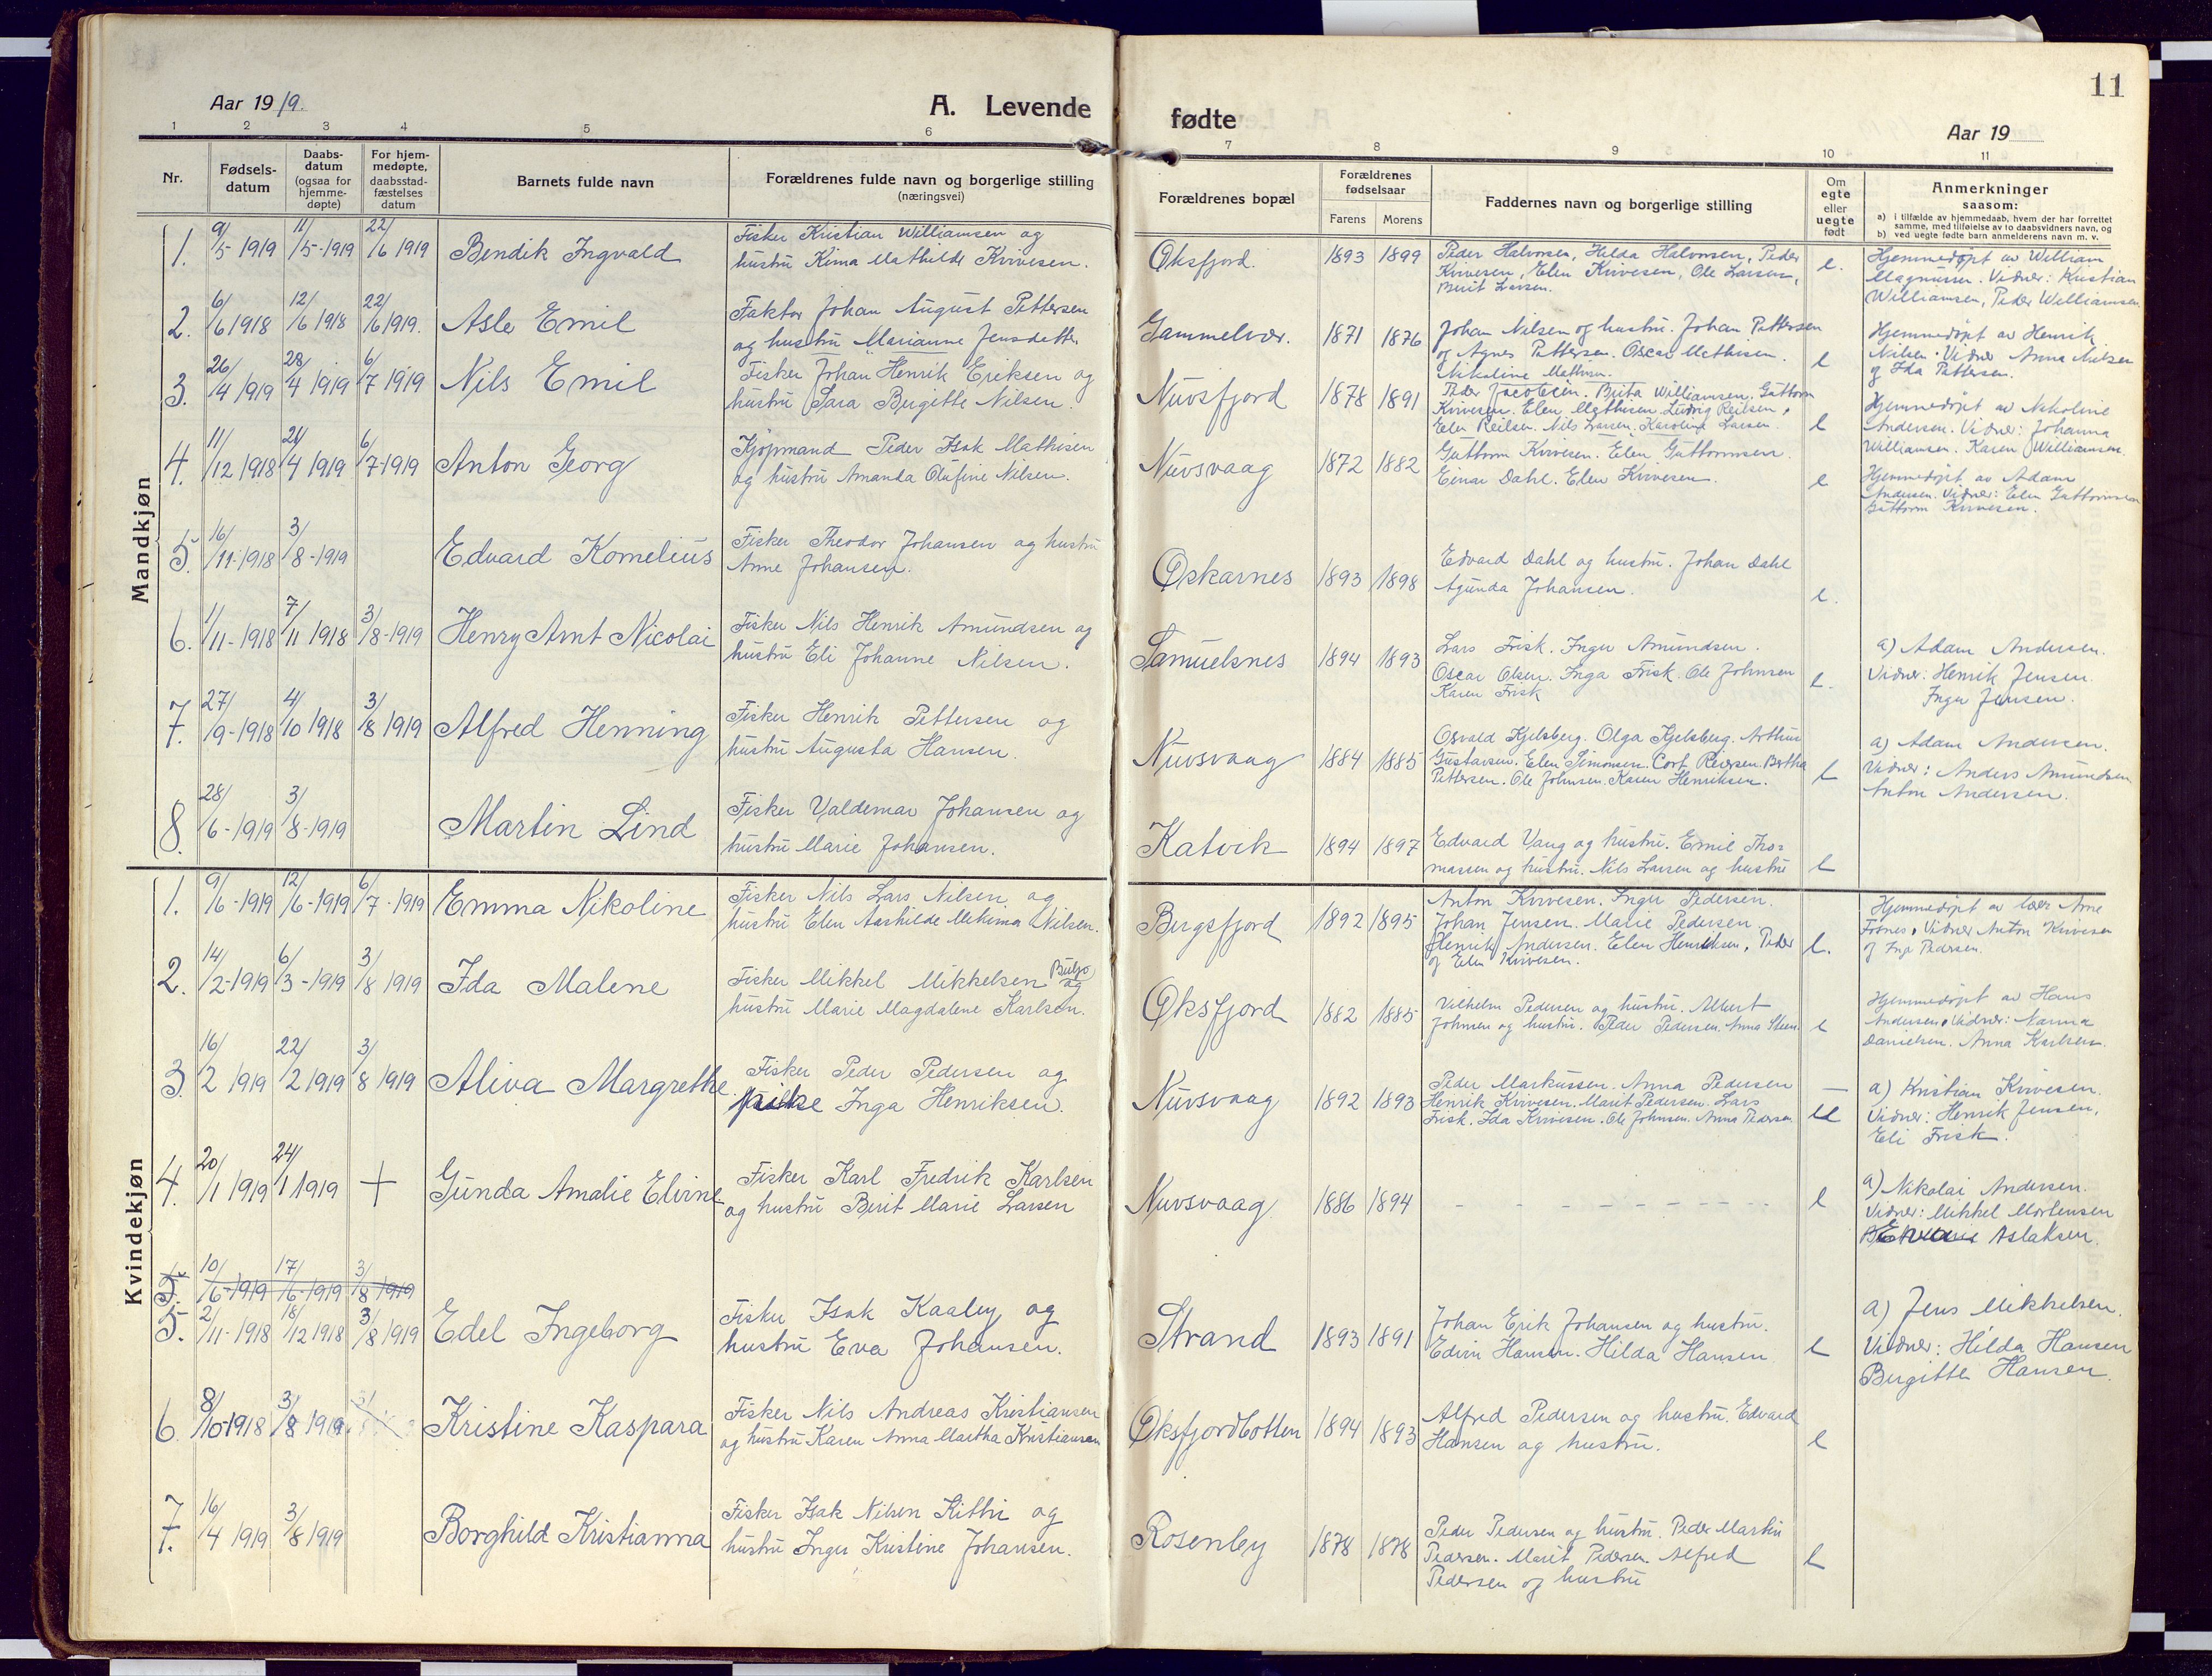 11
Aar 1919.
A. Levende
fødte
Aar 19
1 2 3 4 5 6 7 8 9 10 11
Nr.
Fødsels-
datum
Daabs-
datum
(ogsaa for
hjemme-
døpte)
For hjem-
medøpte,
daabsstad-
fæstelses
datum
Barnets fulde navn
Forældrenes fulde navn og borgerlige stilling
(næringsvei)
Forældrenes bopæl
Forældrenes
fødselsaar
Farens Morens
Faddernes navn og borgerlige stilling
Om
egte
eller
uegte
født
Anmerkninger
saasom:
a) i tilfælde av hjemmedaab, hvem der har forrettet
samme, med tilføielse av to daabsvidners navn, og
b) ved uegte fødte barn anmelderens navn m. v.
Mandkjøn
1. 9/5 1919 11/5-1919 22/6 1919 Bendik Ingvald
Fisker Kristian Williamsen og
hustru Kima Mathilde Kvivesen.
Øksfjord. 1893 1899
Peder Halvorsen, Hilda Halvorsen, Peder
Kvivesen, Elen Kvivesen, Ole Larsen,
Berit Larsen.
e.
Hjemmedøpt av William
Magnussen. Vidner: Kristian
Williamsen, Peder Williamsen
2. 6/6 1918 12/6 1918 22/6 1919. Asle Emil
Faktor Johan August Pettersen
og hustru Marianne Jensdatter
Gammelvær. 1871 1876
Johan Nilsen og hustru. Johan Pettersen
og Agnes Pettersen. Oscar Mathisen.
Nikoline Mathisen.
e
Hjemmedøpt av Henrik
Nilsen. Vidner Anna Nilsen
og Ida Pettersen.
3. 26/4 1919 28/4 1919 6/7 1919 Nils Emil
Fisker Johan Henrik Eriksen og
hustru Sara Bergette Nilsen.
Nuvsfjord 1878 1891
Peder Jacobsen. Brita Williamsen. Guttorm
Kvivesen. Elen Mathisen. Ludvig Reilsen,
Elen Reilsen. Nils Larsen. Karoline Larsen.
e
Hjemmedøpt av Nikoline
Andersen. Vidner: Johanna
Williamsen. Karen Williamsen.
4. 11/12 1918 21/4 1919 6/7-1919 Anton Georg
Kjøpmand Peder Isak Mathisen
og hustru Amanda Olufine Nilsen.
Nuvsvaag 1872 1882
Guttorm Kvivesen. Elen Guttormsen.
Einar Dahl. Elen Kvivesen.
e
Hjemmedøpt av Adam
Andersen. Vidner: Elen Guttormsen
Guttorm Kvivesen.
5. 16/11-1918 3/8-1919 Edvard Kornelius
Fisker Theodor Johansen og hustru
Anne Johansen.
Øskarnes 1893 1898
Edvard Dahl og hustru. Johan Dahl
Agunda Johansen.
e.
6. 1/11-1918 7/11 1918 3/8-1919 Henry Arnt Nicolai
Fisker Nils Henrik Amundsen og
hustru Eli Johanne Nilsen.
Samuelsnes 1894 1893
Lars Frisk. Inger Amundsen.
Oscar Olsen. Inga Frisk. Ole Johnsen
Karen Frisk
e.
a) Adam Andersen.
Vidner: Henrik Jensen.
Inger Jensen.
7. 27/9-1918 4/10 1918 3/8 1919 Alfred Henning
Fisker Henrik Pettersen og
hustru Augusta Hansen.
Nuvsvaag 1884 1885
Osvald Kjelsberg. Olga Kjelsberg. Arthur
Gustavsen. Elen Simonsen. Cort Reiersen. Bertha
Pettersen. Ole Johnsen. Karen Henriksen.
e
a) Adam Andersen.
Vidner: Anders Amundsen
Anton Andersen.
8. 28/6-1919 3/8-1919 Martin Lind
Fisker Valdemar Johansen og
hustru Marie Johansen.
Katvik 1894 1897
Edvard Vang og hustru. Emil Tho-
massen og hustru. Nils Larsen og hustru
e
Kvindekjøn
1. 9/6-1919 12/6-1919 6/7-1919 Emma Nikoline
Fisker Nils Lars Nilsen og
hustru Elen Aashilde Nilsen.
Bergsfjord 1892 1895
Anton Kvivesen. Inger Pedersen.
Johan Jensen. Marie Pedersen.
Henrik Andersen. Elen Henriksen, Peder
og Elen Kvivesen.
e.
Hjemmedøpt av lærer Arne
Fosnes. Vidner Anton Kvivesen
og Inga Pedersen.
2. 14/2-1919 6/3-1919 3/8 1919 Ida Malene
Fisker Mikkel Mikkelsen Buljo og
hustru Marie Magdalene Karlsen.
Øksfjord 1882 1885
Vilhelm Pedersen og hustru. Albert
Johnsen og hustru. Peder Pedersen. Anna Steen.
e
Hjemmedøpt av Hans
Andersen. Vidner: Nanna
Danielsen. Anna Karlsen.
3. 16/2 1919 22/2 1919 3/8 1919 Aliva Margrethe
Fisker Peder Pedersen og
pike Inga Henriksen.
Nuvsvaag 1892 1893
Peder Markussen. Anna Pedersen
Henrik Kvivesen. Marit Pedersen. Lars
Frisk. Ida Kvivesen. Ole Johnsen. Anna Pedersen
ue
a) Kristian Kvivesen.
Vidner: Henrik Jensen,
Eli Frisk.
4. 20/1 1919 24/1 1919 + Gunda Amalie Elvine
Fisker Karl Fredrik Karlsen
og hustru Berit Marie Larsen
Nuvsvaag 1886 1894
- - - - - - - - -
e
a) Nikolai Andersen.
Vidner: Mikkel Mortensen
Aslaksen.
5. 10/6-1919 17/6-1919 3/8 1919
5. 2/11-1918 18/12 1918 3/8 1919 Edel Ingeborg
Fisker Isak Kaaley og
hustru Eva Johansen.
Strand 1893 1891
Johan Erik Johansen og hustru.
Edvin Hansen. Hilda Hansen
e
a) Jens Mikkelsen.
Vidner: Hilda Hansen
Bergitte Hansen.
6. 8/10-1918 3/8 1919 Kristine Kaspara
Fisker Nils Andreas Kristiansen
og hustru Karen Anna Martha Kristiansen
Øksfjordbotten 1894 1893
Alfred Pedersen og hustru. Edvard
Hansen og hustru.
e
7. 16/4 1919 3/8 1919 Borghild Kristianna
Fisker Isak Nilsen Kitti og
hustru Inger Kristine Johansen.
Rosenby 1878 1878
Peder Pedersen og hustru. Peder Martin
Pedersen. Marit Pedersen. Alfred
Pedersen og hustru
e